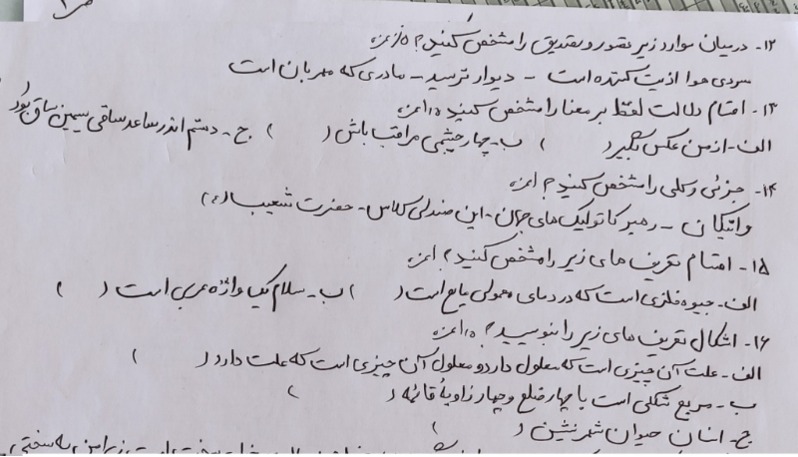 ۱۲- درمیان موارد زیر تصور و تصدیق را مشخص کنید؟ ۷۵/. نمره
سردی هوا اذیت کننده است - دیوار ترسید - مادری که مهربان است
۱۳- اقسام دلالت لفظ بر معنا را مشخص کنید
الف- از من عکس بگیر ( ) ب- چهار چشمی مراقب باش ( ) ج- دستم اندر ساعد ساقی سیمین ساق بود ( )
۱۴- جزئی و کلی را مشخص کنید؟ ۱ نمره
واتیکان - رهبر کاتولیک های جهان - این صندلی کلاس - حضرت شعیب (ع)
۱۵- اقسام تعریف های زیر را مشخص کنید؟ ۱ نمره
الف- جیوه فلزی است که در دمای معمولی مایع است ( ) ب- سلام یک واژه عربی است ( )
۱۶- اشکال تعریف های زیر را بنویسید؟
الف- علت آن چیزی است که معلول دارد و معلول آن چیزی است که علت دارد ( )
ب- مربع شکلی است با چهار ضلع و چهار زاویهٔ قائمه ( )
ج- انسان حیوان شهرنشین ( )